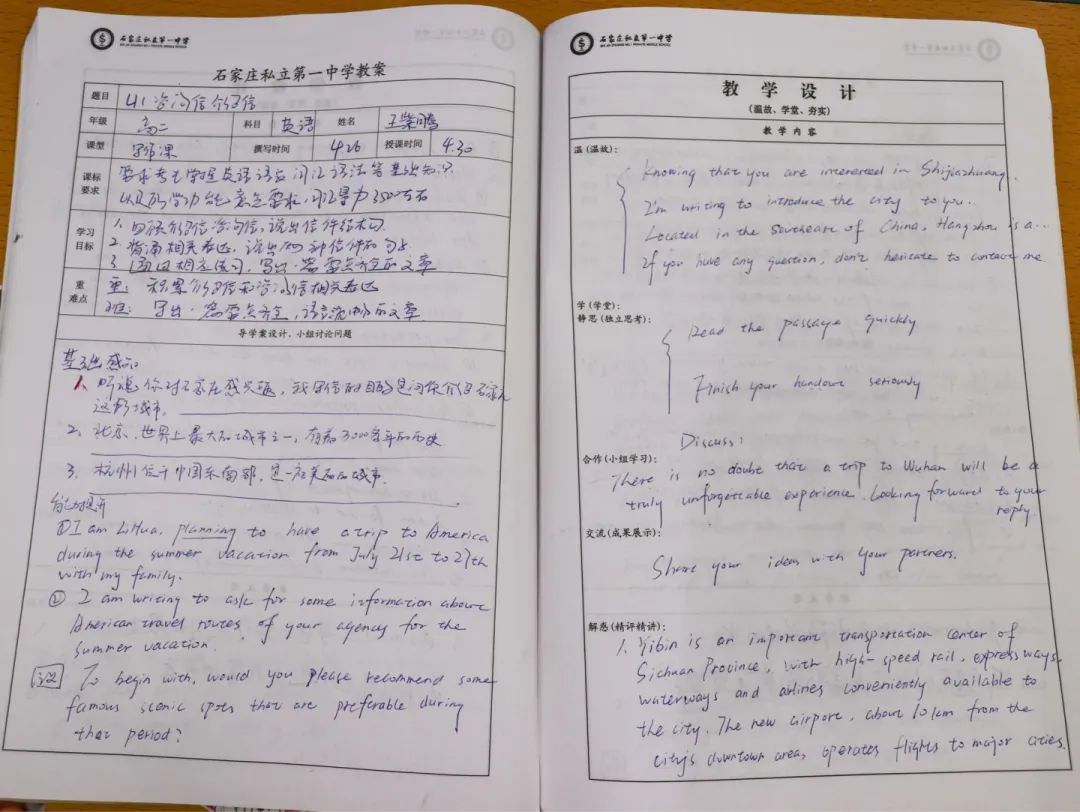 石家庄私立第一中学
SHI JIA ZHUANG NO.1 PRIVATE MIDDLE SCHOOL
石家庄私立第一中学教案
题目 U1 咨询信介绍信
年级 高二 科目 英语 姓名
课型 写作课 撰写时间 4.26 授课时间 4.30
课标要求 要求考生掌握英语语音词汇语法等基础知识
词汇量为3500左右
学习目标 1. 回顾介绍信咨询信,说出信件结构
2. 背诵相关表达,说出两种信件的句式
3. 通过相应练习,写出一篇要点齐全的文章
重难点 重:积累介绍信和咨询信相关表达
难:写出一篇要点齐全,语言流畅的文章
导学案设计、小组讨论问题
基础感知
1. 听说你对石家庄感兴趣,我写信的目的是向你介绍石家庄
这所城市.
2. 北京,世界上最大的城市之一,有着3000多年的历史
3. 杭州位于中国东南部,是一座美丽的城市.
能力提升
① I am LiHua, planning to have a trip to America
during the summer vacation from July 21st to 27th
with my family.
② I am writing to ask for some information about
American travel routes of your agency for the
summer vacation.
To begin with, would you please recommend some
famous scenic spots that are preferable during
that period?
石家庄私立第一中学
SHI JIA ZHUANG NO.1 PRIVATE MIDDLE SCHOOL
教 学 设 计
(温故、学堂、夯实)
教 学 内 容
温(温故):
Knowing that you are interested in Shijiazhuang...
I'm writing to introduce the city to you...
Located in the southeast of China, Hangzhou is a...
If you have any question, don't hesitate to contact me
学(学堂):
静思(独立思考):
Read the passage quickly
Finish your handout seriously
Discuss:
合作(小组学习):
There is no doubt that a trip to Wuhan will be a
truly unforgettable experience. Looking forward to your
reply.
交流(成果展示):
Share your ideas with your partners.
解惑(精评精讲):
1. Yibin is an important transportation center of
Sichuan Province, with high-speed rail, expressways,
waterways and airlines conveniently available to
the city. The new airport, about 10 km from the
city's downtown area, operates flights to major cities.